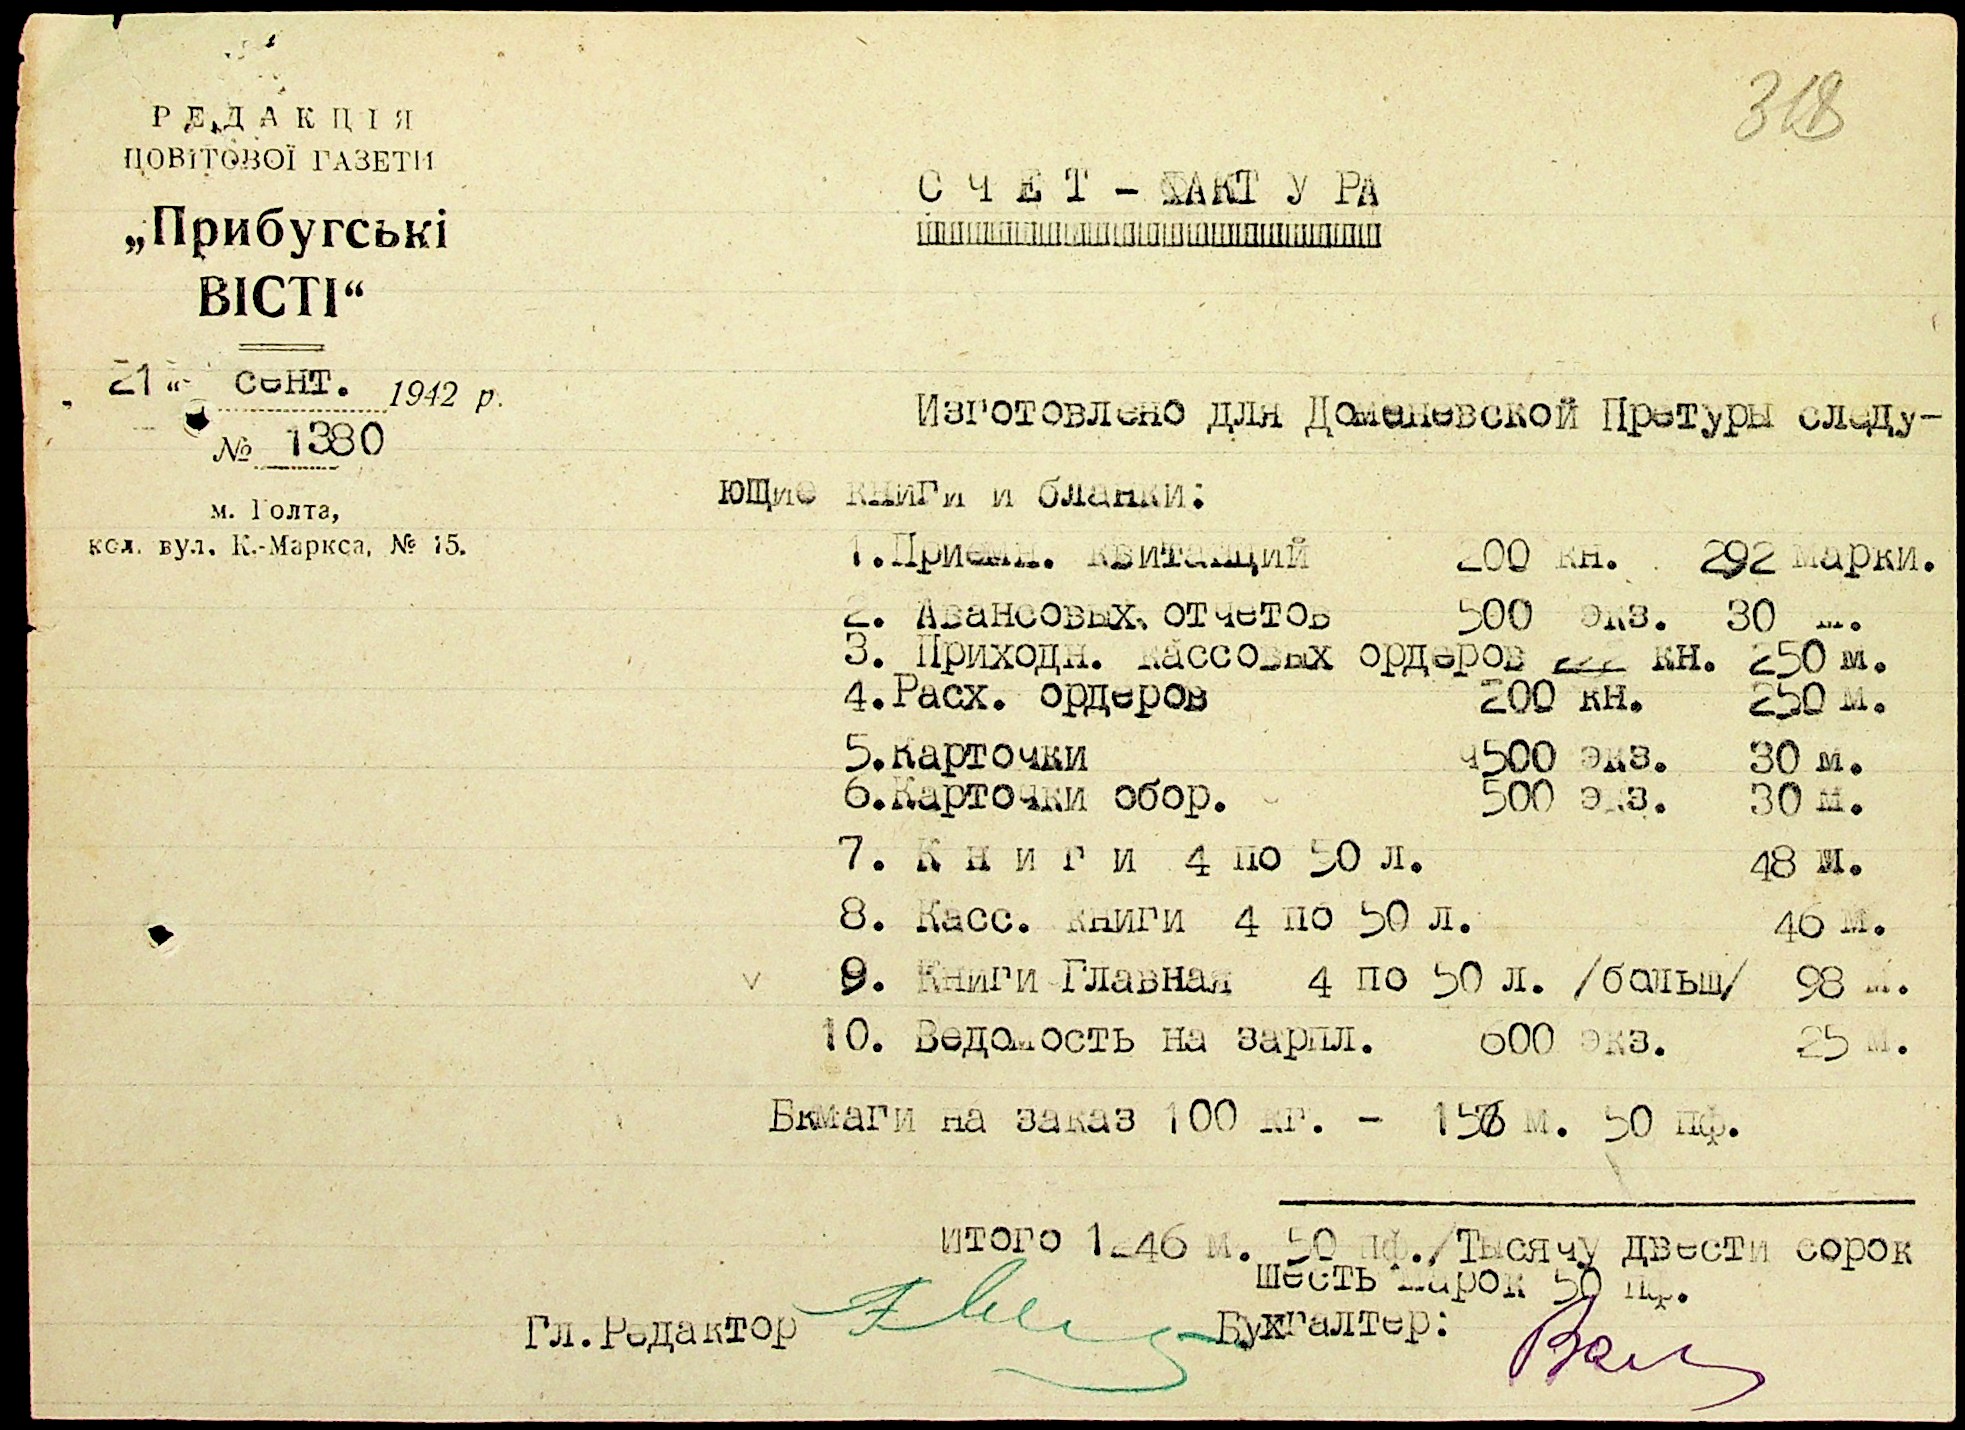 РЕДАКЦІЯ
ПОВІТОВОЇ ГАЗЕТИ
„Прибугські
ВІСТІ“
21 " сент. 1942 р.
№ 1380
м. Голта,
кол. вул. К.-Маркса, № 15.
СЧЕТ - ФАКТУРА
Изготовлено для Доманевской Претуры следу-
ющие книги и бланки:
1.Приемн. квитанций 200 кн. 292 марки.
2. Авансовых отчетов 500 экз. 30 м.
3. Приходн. кассовых ордеров кн. 250 м.
4.Расх. ордеров 200 кн. 250 м.
5.Карточки 500 экз. 30 м.
6.Карточки обор. 500 экз. 30 м.
7. Книги 4 по 50 л. 48 м.
8. Касс. книги 4 по 50 л. 46 м.
9. Книги Главная 4 по 50 л. /больш/ 98 м.
10. Ведомость на зарпл. 600 экз. 25 м.
Бкмаги на заказ 100 кг. - м. 50 пф.
итого 1246 м. 50 пф./Тысячу двести сорок
шесть марок 50 пф.
Гл.Редактор Бухгалтер: